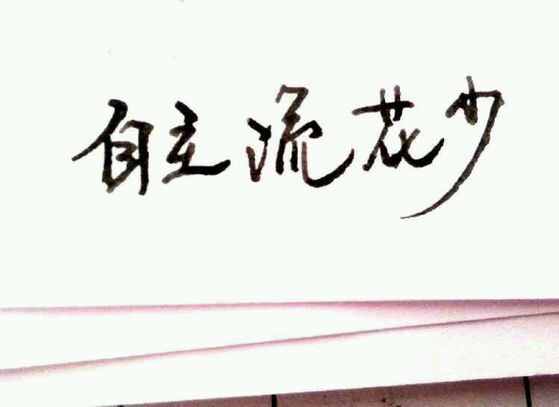 自立流花少